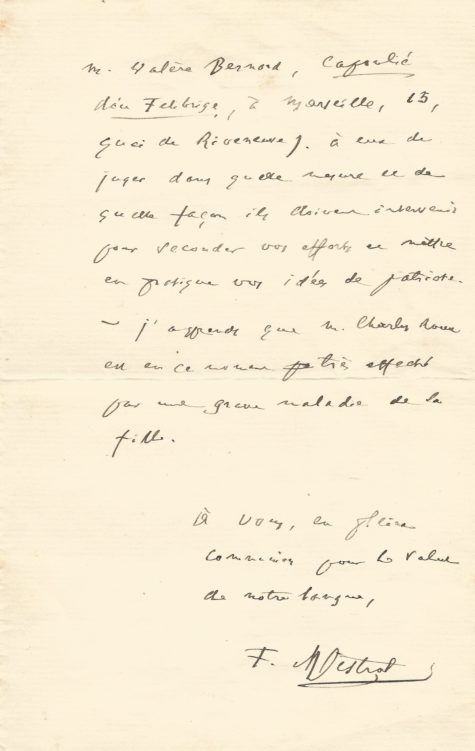 M. Valère Bernard, Capoulié
dóu Felibrige, à Marseille, 13,
quai de Riveneuve). à eux de
juger dans quelle mesure et de
quelle façon ils doivent intervenir
pour seconder vos efforts et mettre
en pratique vos idées de patriote.
— j'apprends que M. Charles Roux
est en ce moment très affecté
par une grave maladie de sa
fille.
À vous, en
communion pour le salut
de notre langue,
F. Mistral